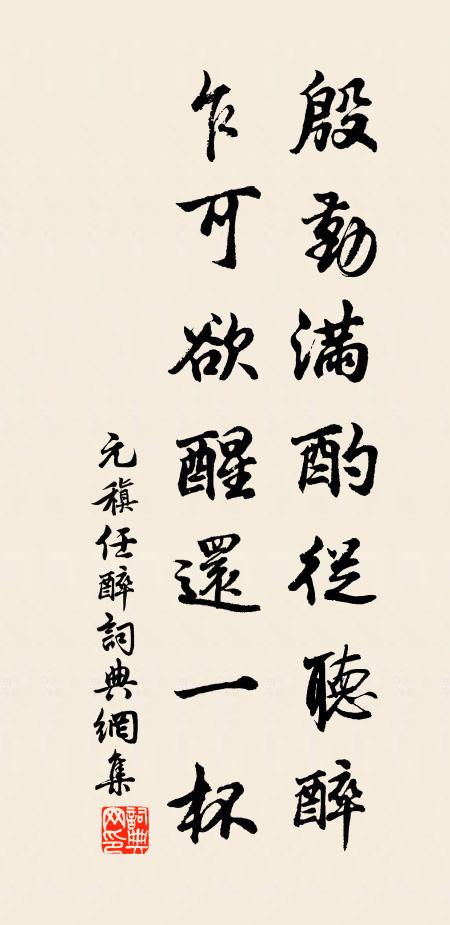 殷勤滿酌從聽醉
乍可欲醒還一杯
元稹任醉詞典網集
詞典網印